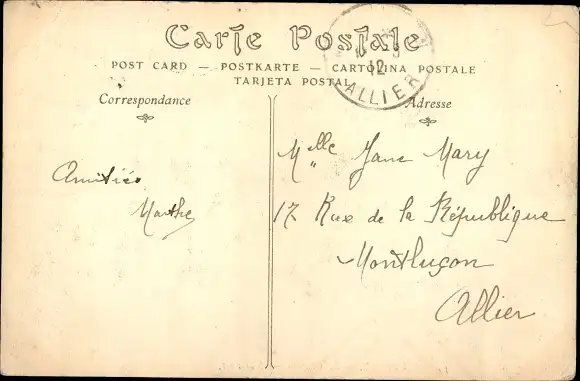 Carte Postale
POST CARD — POSTKARTE — CARTOLINA POSTALE
TARJETA POSTAL
Correspondance
Adresse
12
ALLIER
Amitiés
Marthe
Melle Jane Mary
17 Rue de la République
Montluçon
Allier